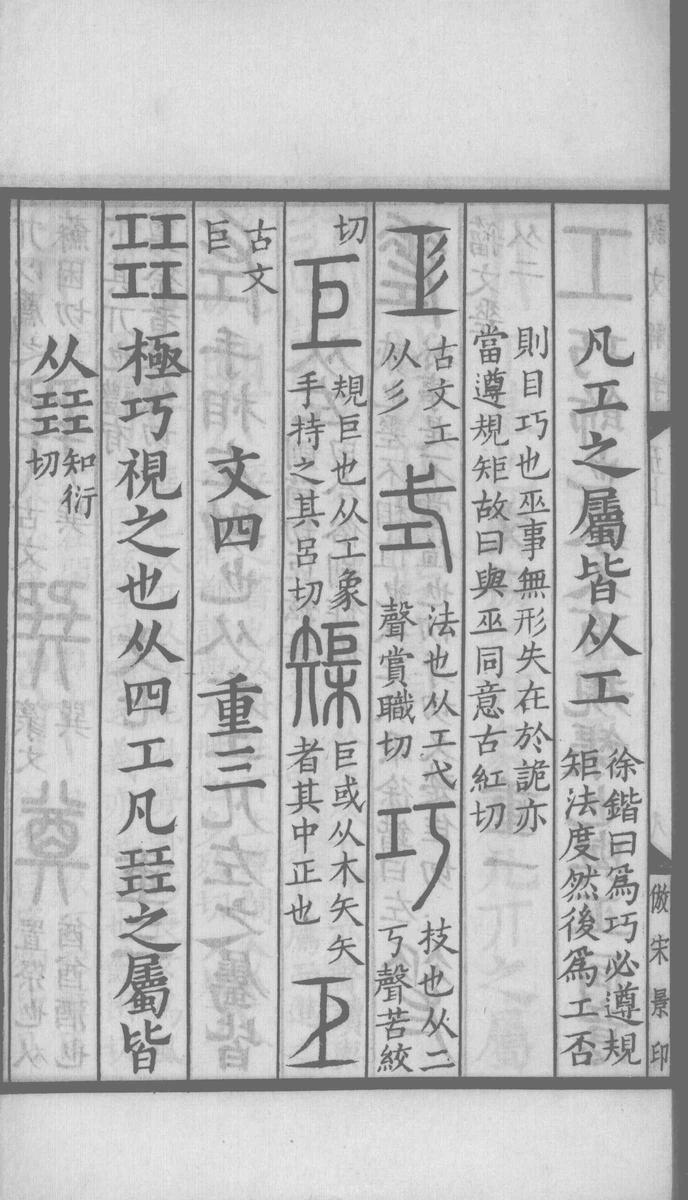 倣宋景印
凡工之屬皆从工
徐鍇曰爲巧必遵規
矩法度然後爲工否
則目巧也巫事無形失在於詭亦
當遵規矩故曰與巫同意古紅切
𢒄
古文工
从彡
式
法也从工弋
聲賞職切
巧
技也从工
丂聲苦絞
切
巨
規巨也从工象
手持之其呂切
榘
巨或从木矢矢
者其中正也
古文
巨
文四 重三
㠭 極巧視之也从四工凡㠭之屬皆
从㠭
知衍
切